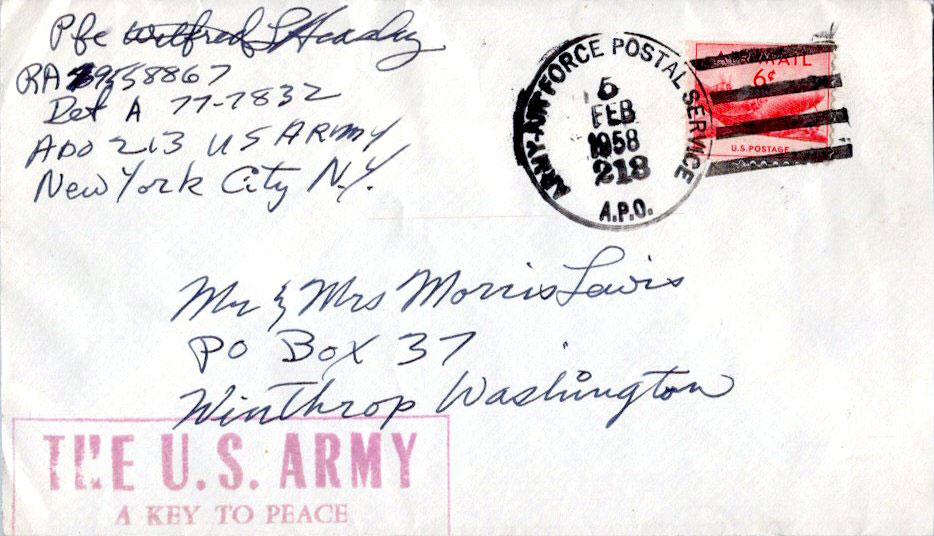 Pfc Wilfred L Headley
RA 19558867
Det A 77-7832
APO 213 US ARMY
New York City N.Y.
ARMY-AIR FORCE POSTAL SERVICE
5
FEB
1958
218
A.P.O.
AIR MAIL
6¢
U.S. POSTAGE
Mr & Mrs Morris Lewis
PO Box 37
Winthrop Washington
THE U.S. ARMY
A KEY TO PEACE